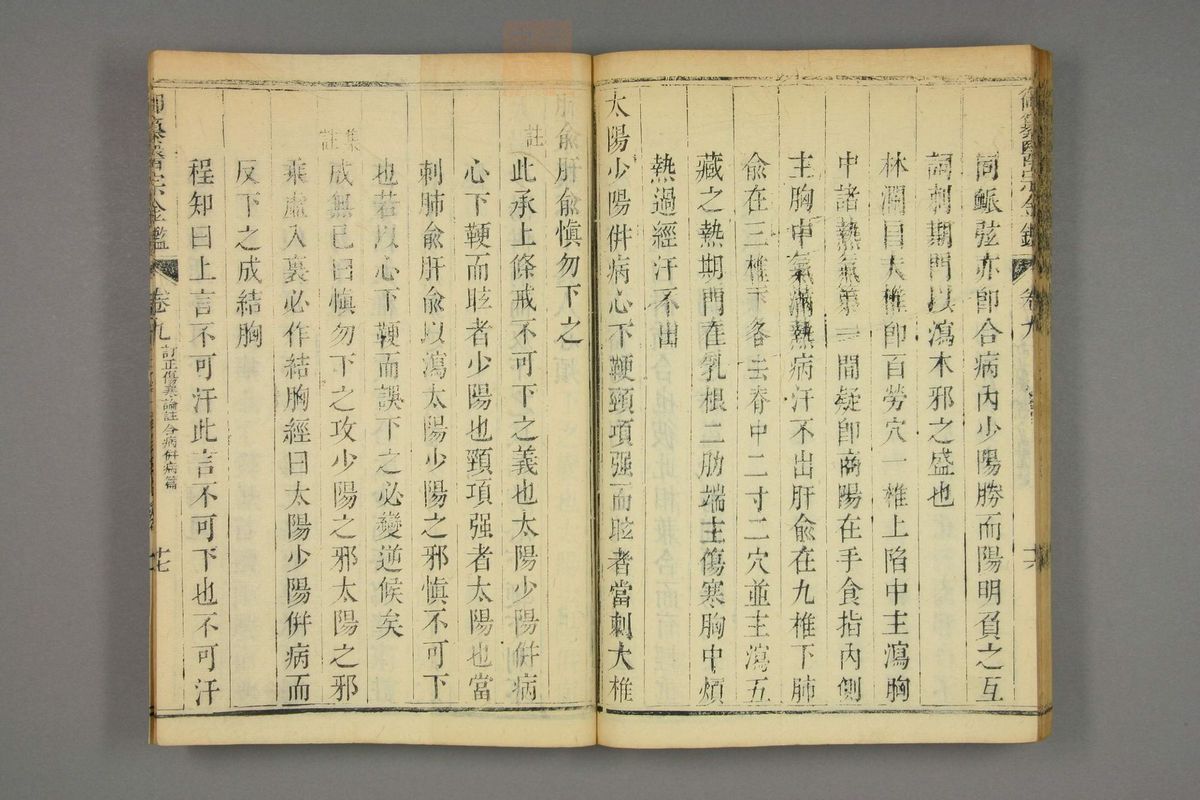 同脈弦亦卽合病內少陽勝而陽明負之互
詞刺期門以瀉木邪之盛也
林瀾曰大椎卽百勞穴一椎上陷中主瀉胸
中諸熱氣第一間疑卽商陽在手食指內側
主胸中氣滿熱病汗不出肝兪在九椎下肺
兪在三椎下各去脊中二寸二穴並主瀉五
藏之熱期門在乳根二肋端主傷寒胸中煩
熱過經汗不出
太陽少陽併病心下鞕頸項强而眩者當刺大椎
肺兪肝兪愼勿下之
註
此承上條戒不可下之義也太陽少陽併病
心下鞕而眩者少陽也頸項强者太陽也當
刺肺兪肝兪以瀉太陽少陽之邪愼不可下
也若以心下鞕而誤下之必變逆候矣
集註
成無己曰愼勿下之攻少陽之邪太陽之邪
乘虛入裏必作結胸經曰太陽少陽併病而
反下之成結胸
程知曰上言不可汗此言不可下也不可汗
御纂醫宗金鑑
卷九
訂正傷寒論註合病併病篇